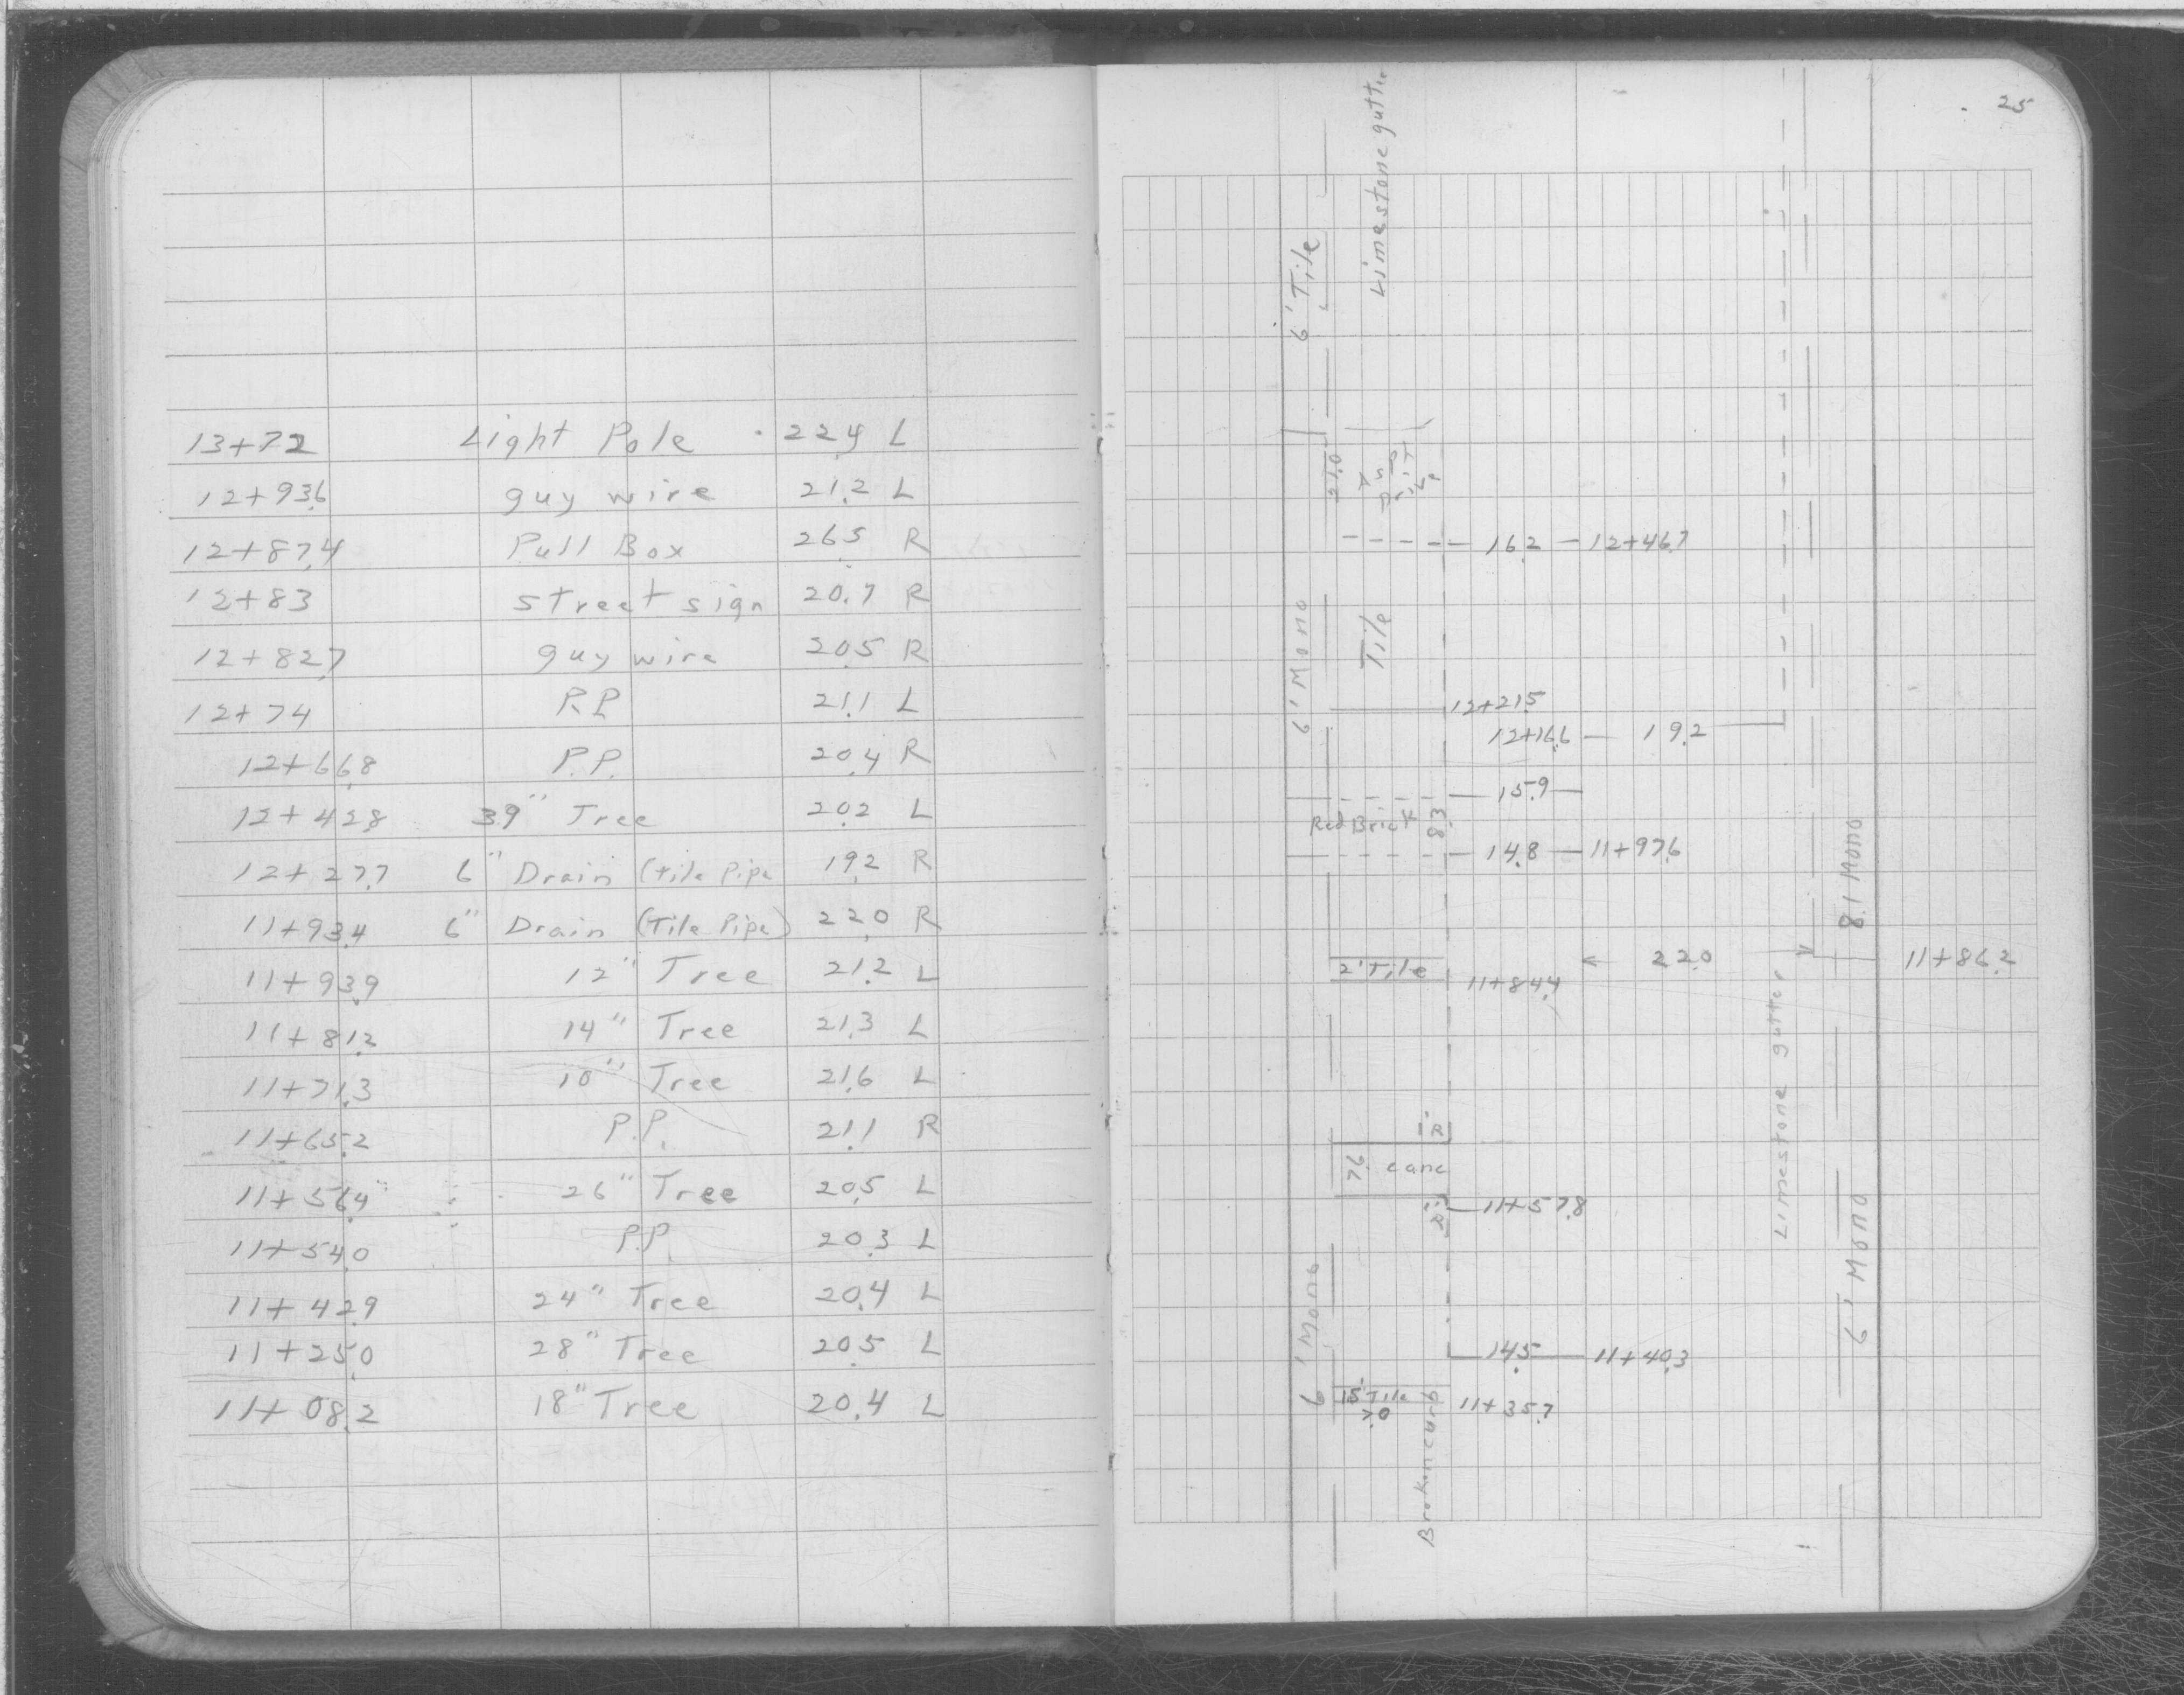 13+72 Light Pole 22.4 L
12+93.6 guy wire 21.2 L
12+87.4 Pull Box 26.5 R
12+83 street sign 20.7 R
12+82.7 guy wire 20.5 R
12+74 P.P. 21.1 L
12+66.8 P.P. 20.4 R
12+42.8 39" Tree 20.2 L
12+27.7 6" Drain (tile Pipe 19.2 R
11+93.4 6" Drain (Tile Pipe) 22.0 R
11+93.9 12" Tree 21.2 L
11+81.2 14" Tree 21.3 L
11+71.3 10" Tree 21.6 L
11+65.2 P.P. 21.1 R
11+56.4 26" Tree 20.5 L
11+54.0 P.P. 20.3 L
11+42.9 24" Tree 20.4 L
11+25.0 28" Tree 20.5 L
11+08.2 18" Tree 20.4 L
25
Limestone gutter
6' Tile
21.0
Drive
16.2 12+46.7
6' Mono
Tile
12+21.5
12+16.6 19.2
15.9
Red Brick 8.3
14.8 11+97.6
8.1 Mono
2' Tile
22.0
11+86.2
11+84.4
Limestone gutter
1'R
7.6 conc
11+57.8
6' Mono
6' Mono
14.5 11+40.3
1.5' Tile
7.0
11+35.7
Broken curb